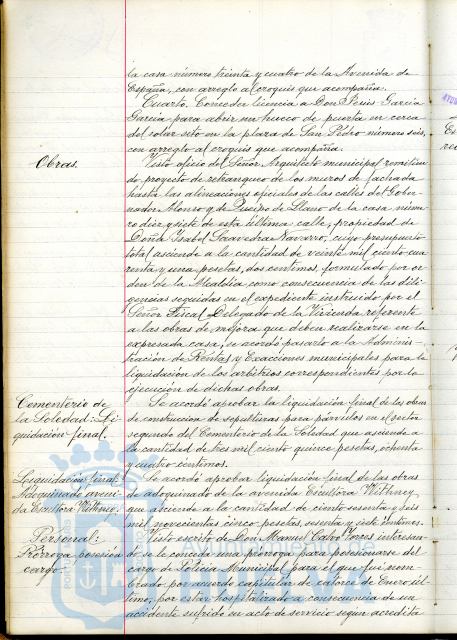 la casa número treinta y cuatro de la Avenida de
España, con arreglo al croquis que acompaña.
Cuarto. Conceder licencia a Don Jesús García
García para abrir un hueco de puerta en cerca
del solar sito en la plaza de San Pedro número seis,
con arreglo al croquis que acompaña.
Obras.
Visto oficio del Señor Arquitecto municipal remitien
do proyecto de retranqueo de los muros de fachada
hasta las alineaciones oficiales de las calles del Gober-
nador Alonso y de Queipo de Llano de la casa núme
ro diez y siete de esta última calle, propiedad de
Doña Isabel Saavedra Navarro, cuyo presupuesto
total asciende a la cantidad de veinte mil ciento cua
renta y una pesetas, dos centimos, formulado por or
den de la Alcaldía como consecuencia de las dili
gencias seguidas en el expediente instruido por el
Señor Fiscal Delegado de la Vivienda referente
a las obras de mejora que deben realizarse en la
expresada casa, se acordó pasarlo a la Adminis-
tración de Rentas y Exacciones municipales para la
liquidación de los arbitrios correspondientes por la
ejecución de dichas obras.
Cementerio de
la Soledad: Li
quidación final.
Se acordó aprobar la liquidación final de las obras
de construcción de sepulturas para párvulos en el sector
segundo del Cementerio de la Soledad que asciende a
la cantidad de tres mil ciento quince pesetas, ochenta
y cuatro centimos.
Liquidación final
Adoquinado aveni
da Escultora Withney.
Se acordó aprobar liquidación final de las obras
de adoquinado de la avenida Escultora Withney,
que asciende a la cantidad de ciento sesenta y seis
mil novecientas cinco pesetas, sesenta y siete centimos.
Personal:
Prórroga posesión
cargo.
Visto escrito de Don Manuel Calvo Flores interesan-
do se le conceda una prórroga para posesionarse del
cargo de Policía Municipal para el que fué nom-
brado por acuerdo capitular de catorce de Enero úl-
timo, por estar hospitalizado a consecuencia de un
accidente sufrido en acto de servicio según acredita